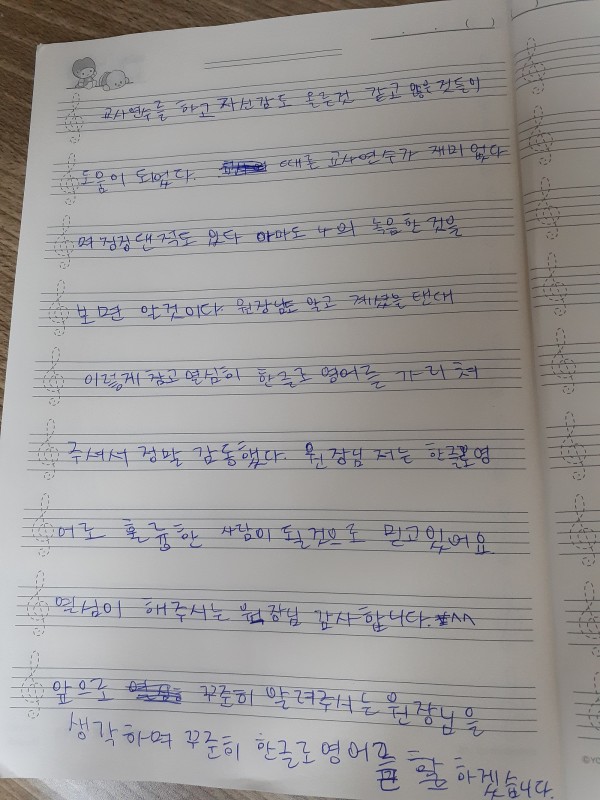 교사연수를 하고 자신감도 올른건 같고 많은것들이
도움이 되었다. 때론 교사연수가 재미 없다
며 징징댄적도 있다 아마도 나의 녹음한 것을
보면 알것이다 원장님도 알고 계셨을 탠대
이렇게 참고 열심히 한글로 영어를 가리쳐
주셔서 정말 감동했다. 원장님 저는 한글로영
어로 훌륭한 사람이 될것으로 믿고있어요
열심이 해주시는 원장님 감사합니다.^^
앞으로 꾸준히 알려주시는 원장님을
생각하여 꾸준히 한글로영어를 하겠습니다.